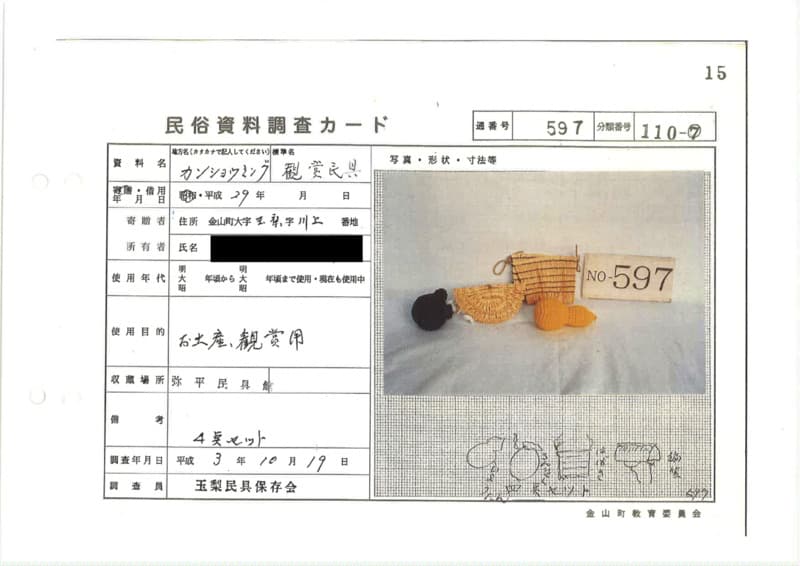 15
民俗資料調査カード
通番号 597 分類番号 110-⑦
資料名 地方名(カタカナで記入してください) カンショウミング 標準名 観賞民具
写真・形状・寸法等
寄贈・借用年月日 昭和・平成 29年 月 日
寄贈者 住所 金山町大字玉梨字川上 番地
所有者 氏名
使用年代 明大昭 年頃から 明大昭 年頃まで使用・現在も使用中
NO-597
使用目的 お土産、観賞用
収蔵場所 弥平民具館
備考 4点セット
調査年月日 平成 3年 10月 19日
調査員 玉梨民具保存会
597
金山町教育委員会